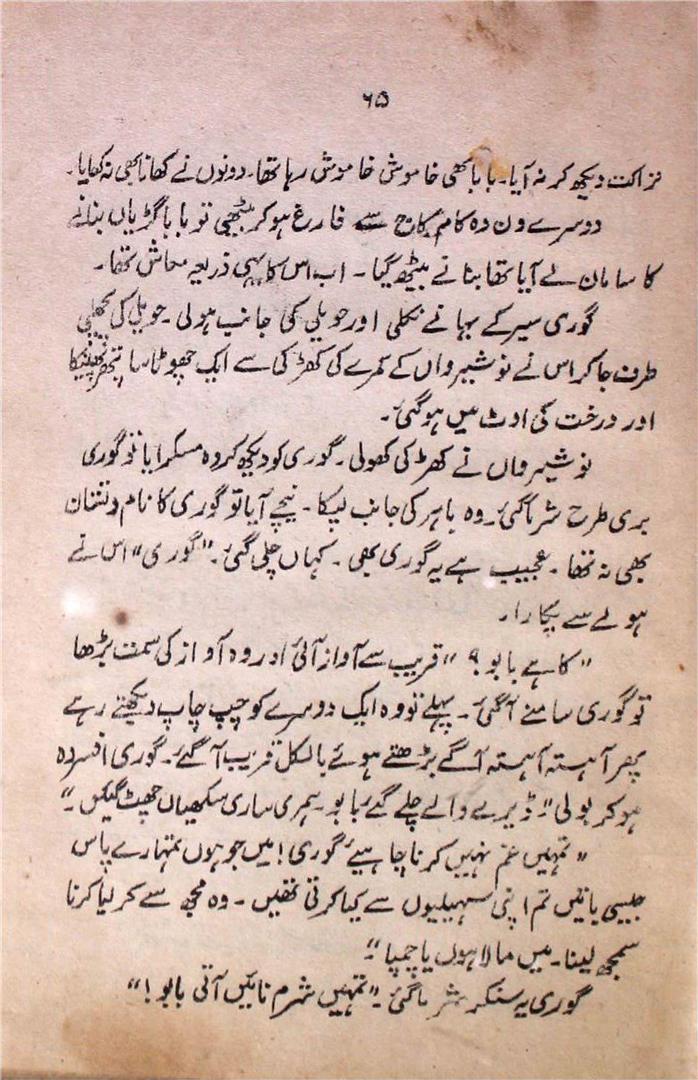 ۶۵
نزاکت دیکھ کر نہ آیا۔ بابا بھی خاموش خاموش رہا تھا۔ دونوں نے کھانا بھی نہ کھایا۔
دوسرے دن وہ کام کاج سے فارغ ہو کر بیٹھی تو بابا گڑیاں بنانے
کا سامان لے آیا تھا بنانے بیٹھ گیا۔ اب اس کا یہی ذریعہ معاش تھا۔
گوری سیر کے بہانے نکلی اور حویلی کی جانب ہولی۔ حویلی کی پچھلی
طرف جا کر اس نے نوشیرواں کے کمرے کی کھڑکی سے ایک چھوٹا سا پتھر پھینکا
اور درخت کی اوٹ میں ہو گئی۔
نوشیرواں نے کھڑکی کھولی۔ گوری کو دیکھ کر وہ مسکرایا تو گوری
بری طرح شرما گئی۔ وہ باہر کی جانب لپکا۔ نیچے آیا تو گوری کا نام و نشان
بھی نہ تھا۔ عجیب ہے یہ گوری بھی۔ کہاں چلی گئی۔ "گوری" اس نے
ہولے سے پکارا۔
"کاہے بابو؟" قریب سے آواز آئی اور وہ آواز کی سمت بڑھا
تو گوری سامنے آ گئی۔ پہلے تو وہ ایک دوسرے کو چپ چاپ دیکھتے رہے
پھر آہستہ آہستہ آگے بڑھتے ہوئے بالکل قریب آ گئے۔ گوری افسردہ
ہو کر بولی "ڈیرے والے چلے گئے بابو۔ ہمری ساری سکھیاں چھٹ گیئں۔"
"تمہیں غم نہیں کرنا چاہیے گوری! میں جو ہوں تمہارے پاس
جیسی باتیں تم اپنی سہیلیوں سے کیا کرتی تھیں۔ وہ مجھ سے کر لیا کرنا
سمجھ لینا۔ میں مالا ہوں یا چمپا۔"
گوری یہ سنکر شرما گئی۔ "تمہیں شرم نائیں آتی بابو!"